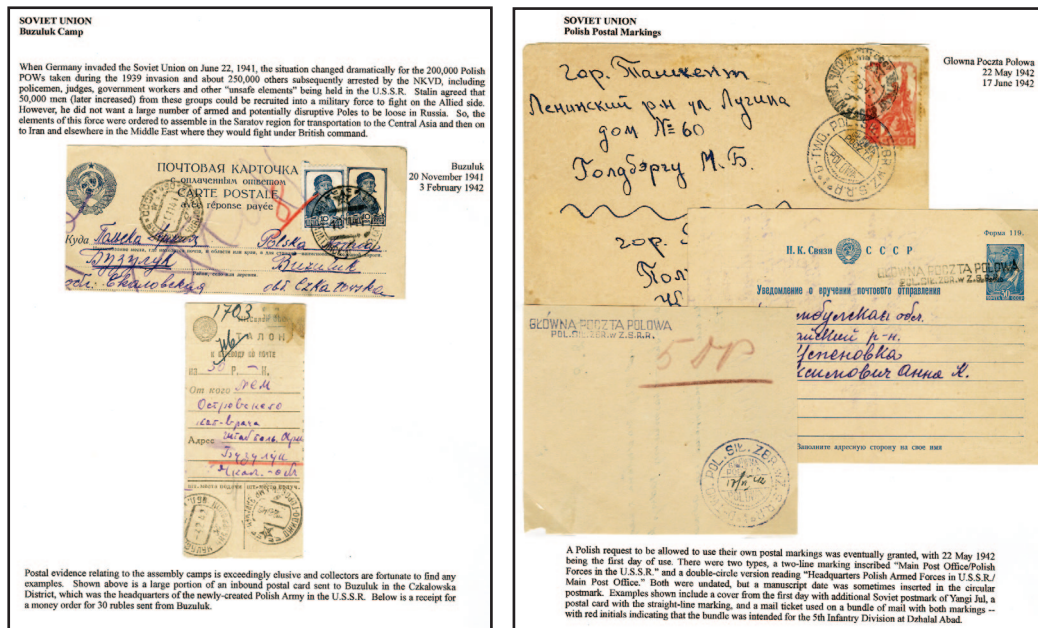 SOVIET UNION
Buzuluk Camp
When Germany invaded the Soviet Union on June 22, 1941, the situation changed dramatically for the 200,000 Polish
POWs taken during the 1939 invasion and about 250,000 others subsequently arrested by the NKVD, including
policemen, judges, government workers and other "unsafe elements" being held in the U.S.S.R. Stalin agreed that
50,000 men (later increased) from these groups could be recruited into a military force to fight on the Allied side.
However, he did not want a large number of armed and potentially disruptive Poles to be loose in Russia. So, the
elements of this force were ordered to assemble in the Saratov region for transportation to the Central Asia and then on
to Iran and elsewhere in the Middle East where they would fight under British command.
Buzuluk
20 November 1941
3 February 1942
ПОЧТОВАЯ КАРТОЧКА
с оплаченным ответом
CARTE POSTALE
avec réponse payée
Куда
Polska
Бузулук Buzuluk
Чкаловская obł. Czkałowska
1703
ТАЛОН
к переводу по почте
На 30 Р. – К.
От кого
Островского
Адрес
Бузулук
Postal evidence relating to the assembly camps is exceedingly elusive and collectors are fortunate to find any
examples. Shown above is a large portion of an inbound postal card sent to Buzuluk in the Czkalowska
District, which was the headquarters of the newly-created Polish Army in the U.S.S.R. Below is a receipt for
a money order for 30 rubles sent from Buzuluk.
SOVIET UNION
Polish Postal Markings
Glowna Poczta Polowa
22 May 1942
17 June 1942
гор. Ташкент
Ленинский р-н ул Лугина
дом № 60
Голдбергу М.Б.
гор.
POL. SIŁ. ZBR. w Z.S.R.R.
Форма 119.
Н. К. Связи СССР
GŁÓWNA POCZTA POLOWA
POL.SIŁ.ZBR.w Z.S.R.R.
Уведомление о вручении почтового отправления
обл.
р-н.
Успеновка
Анна К.
Заполните адресную сторону на свое имя
GŁÓWNA POCZTA POLOWA
POL.SIŁ.ZBR.w Z.S.R.R.
5 DP
POL. SIŁ. ZBR. w Z.S.R.R.
A Polish request to be allowed to use their own postal markings was eventually granted, with 22 May 1942
being the first day of use. There were two types, a two-line marking inscribed "Main Post Office/Polish
Forces in the U.S.S.R." and a double-circle version reading "Headquarters Polish Armed Forces in U.S.S.R./
Main Post Office." Both were undated, but a manuscript date was sometimes inserted in the circular
postmark. Examples shown include a cover from the first day with additional Soviet postmark of Yangi Jul, a
postal card with the straight-line marking, and a mail ticket used on a bundle of mail with both markings --
with red initials indicating that the bundle was intended for the 5th Infantry Division at Dzhalal Abad.